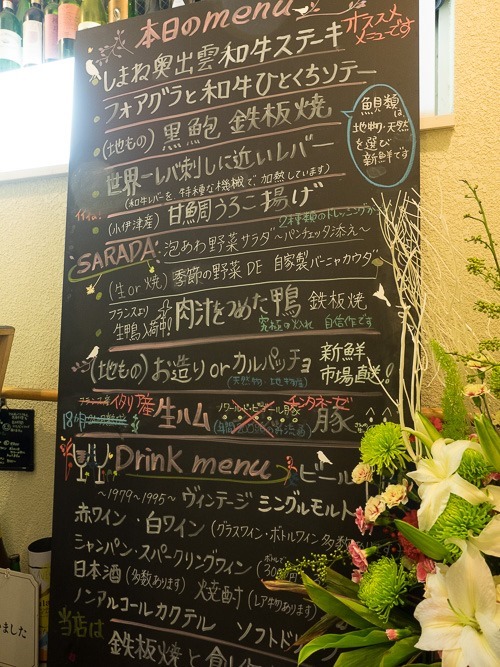 本日のmenu
オススメ
メニューです
しまね奥出雲和牛ステーキ
フォアグラと和牛ひとくちソテー
(地もの)黒鮑 鉄板焼
魚貝類は
地物・天然
を選び
新鮮です
世界一レバ刺しに近いレバー
(和牛レバーを特殊な機械で加熱しています)
(小伊津産)甘鯛うろこ揚げ
2種類のドレッシングか
SARADA:泡あわ野菜サラダ〜パンチェッタ添え〜
(生or焼)季節の野菜DE 自家製バーニャカウダ
フランスより
生鴨入荷中!
肉汁をつめた鴨 鉄板焼
究極の火入れ 自信作です
(地もの)お造りorカルパッチョ
(天然物・地物産)
新鮮
市場直送!
イタリア産生ハム
18ヶ月
豚
Drink menu
ビール
〜1979〜1995〜ヴィンテージ シングルモルト
赤ワイン・白ワイン(グラスワイン・ボトルワイン多数
シャンパン・スパークリングワイン
日本酒(多数あります) 焼酎(レア物あります)
ノンアルコールカクテル ソフトド
当店は
鉄板焼と
ました